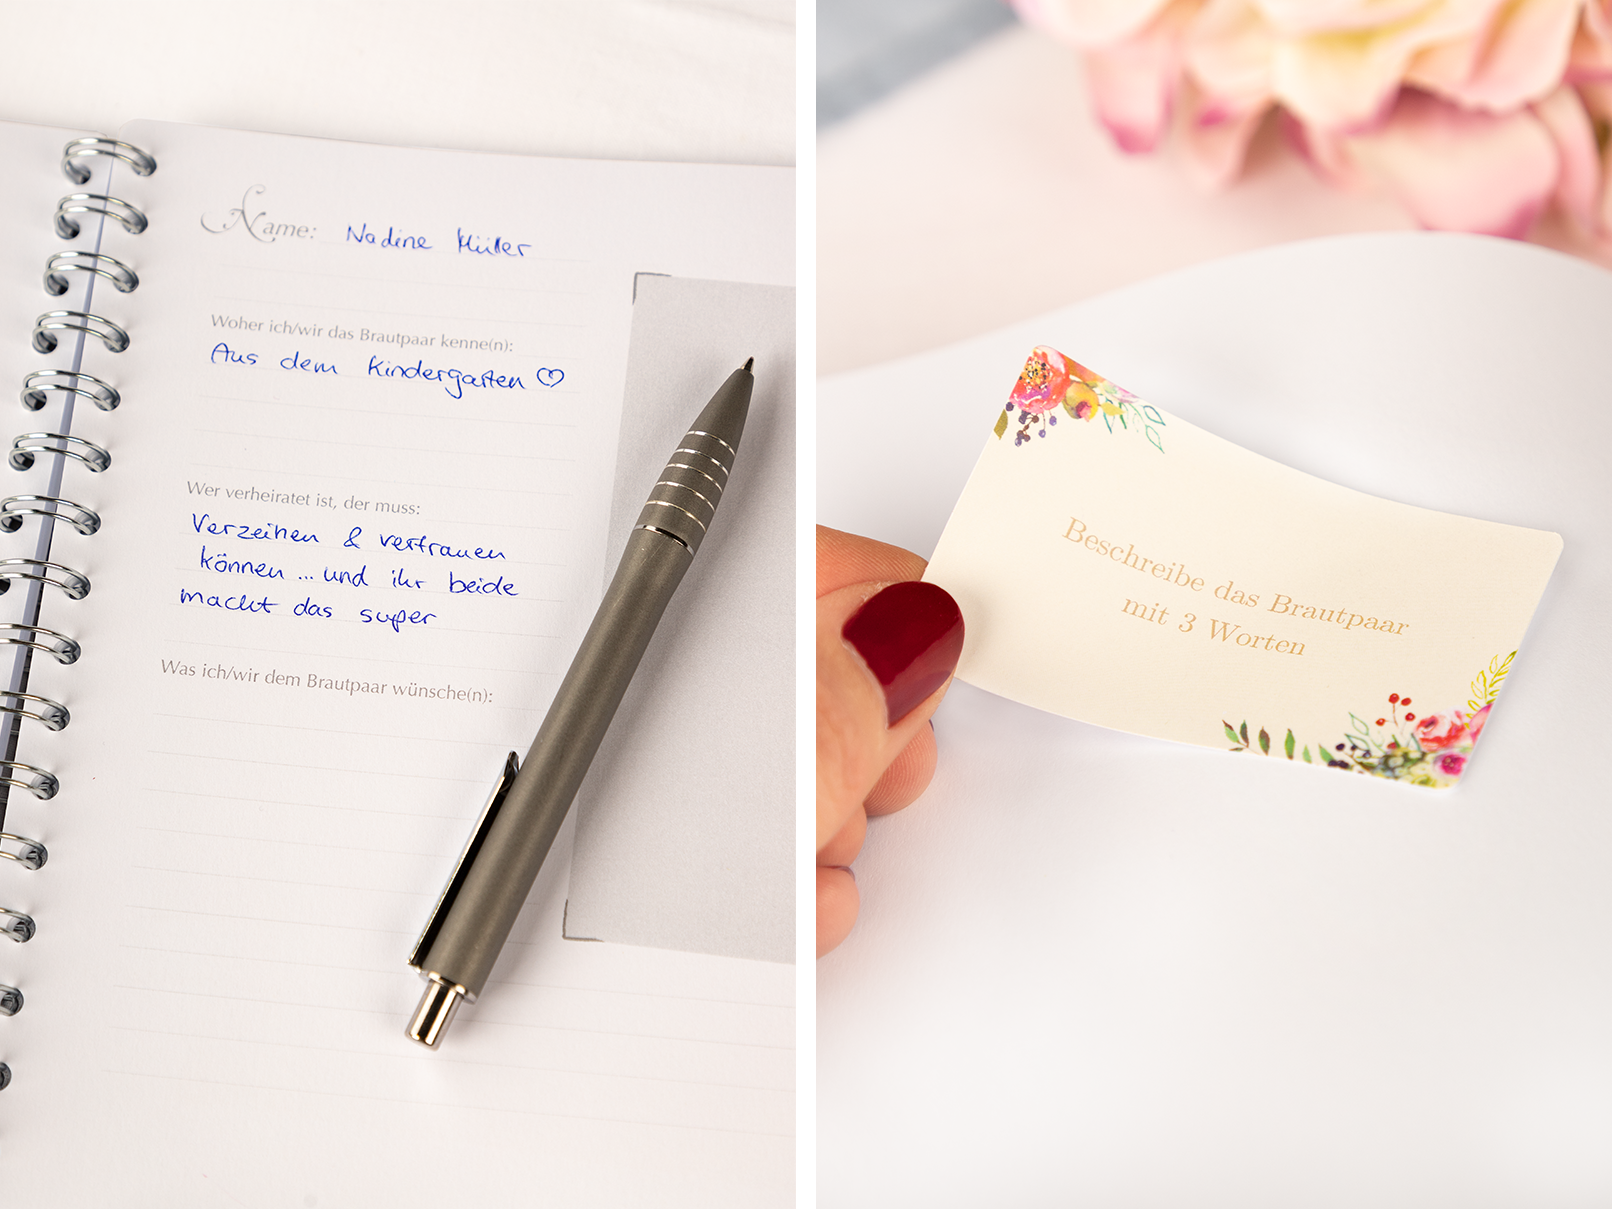 Name: Nadine Müller
Woher ich/wir das Brautpaar kenne(n):
Aus dem Kindergarten ♡
Wer verheiratet ist, der muss:
Verzeihen & vertrauen
können ... und ihr beide
macht das super
Was ich/wir dem Brautpaar wünsche(n):
Beschreibe das Brautpaar
mit 3 Worten